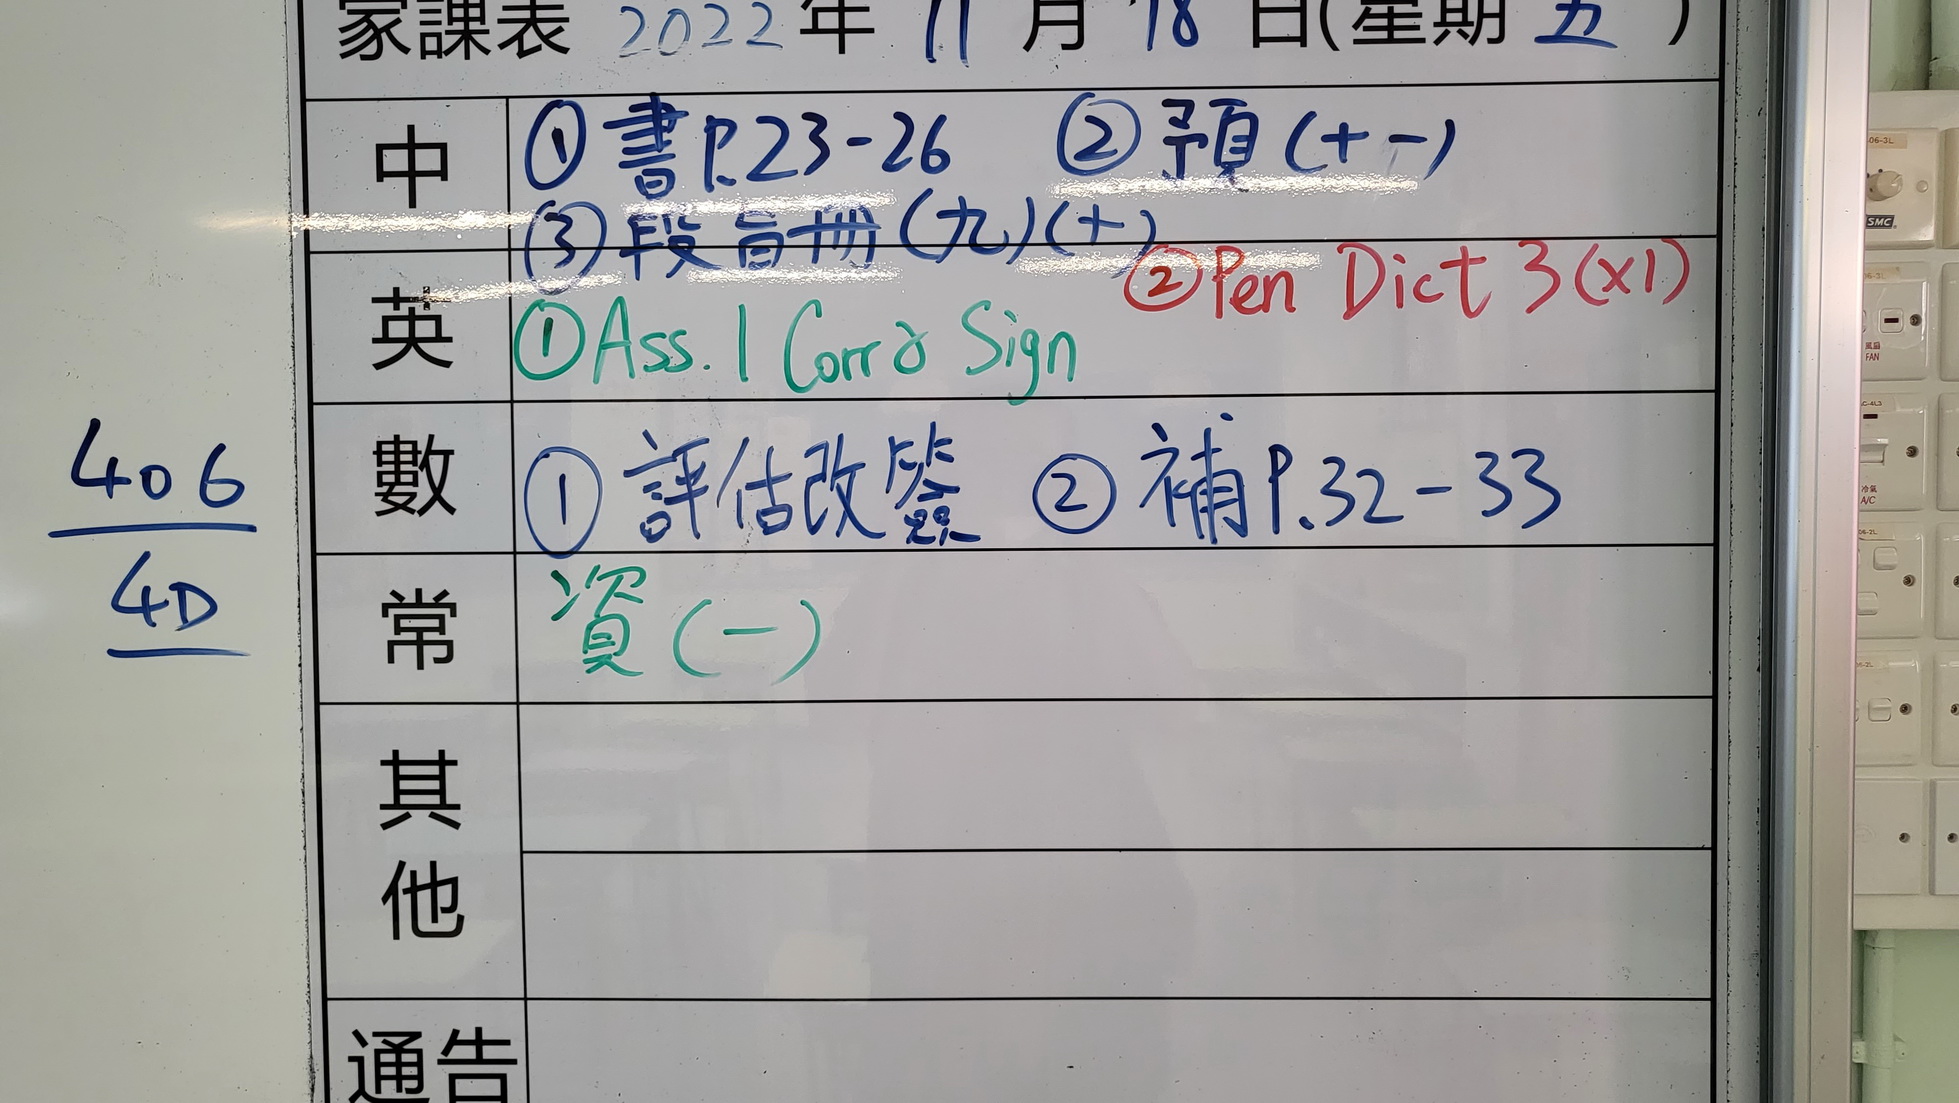 家課表 2022年 11月 18日(星期五)
中 ①書P.23-26 ②預(十一)
③段盲冊(九)(十)
英 ②Pen Dict 3(x1)
①Ass. 1 Corr & Sign
數 ①評估改簽 ②補P.32-33
常 資(一)
其他
通告
406
4D
06-3L
SMC
風扇
FAN
冷氣
A/C